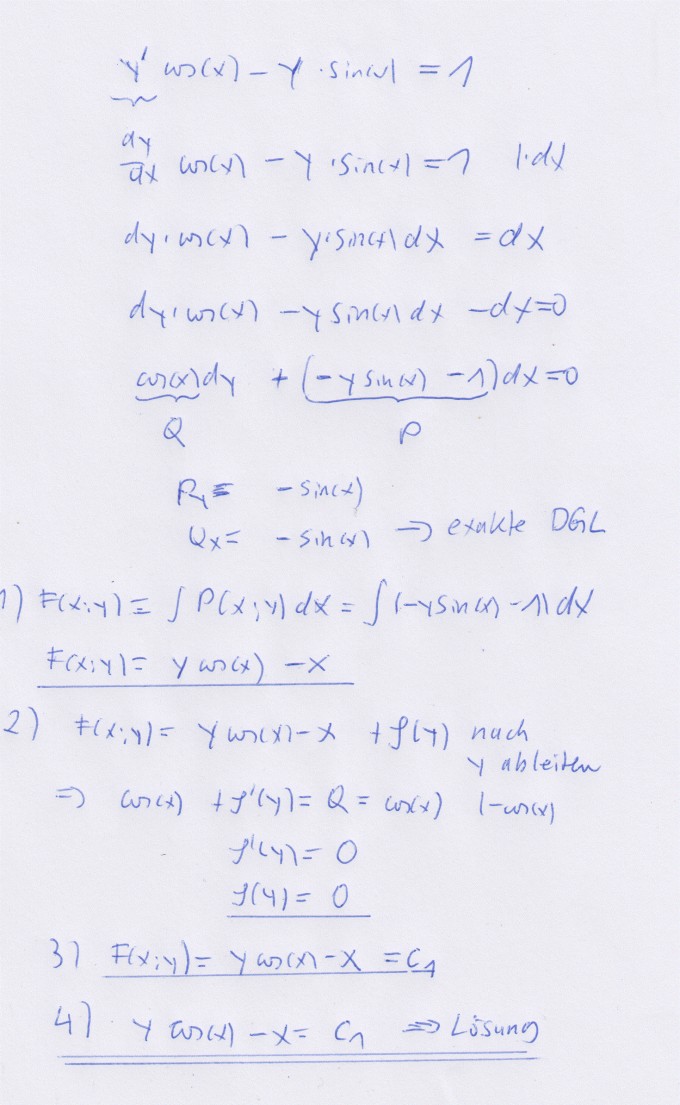 y' cos(x) - y · sin(x) = 1
dy/dx cos(x) - y · sin(x) = 1 | · dx
dy · cos(x) - y · sin(x) dx = dx
dy · cos(x) - y sin(x) dx - dx = 0
cos(x) dy + (-y sin(x) - 1) dx = 0
Q P
Py = - sin(x)
Qx = - sin(x) ⇒ exakte DGL
1) F(x;y) = ∫ P(x;y) dx = ∫ (-y sin(x) - 1) dx
F(x;y) = y cos(x) - x
2) F(x;y) = y cos(x) - x + f(y) nach
y ableiten
⇒ cos(x) + f'(y) = Q = cos(x) | - cos(x)
f'(y) = 0
f(y) = 0
3) F(x;y) = y cos(x) - x = C1
4) y cos(x) - x = C1 ⇒ Lösung